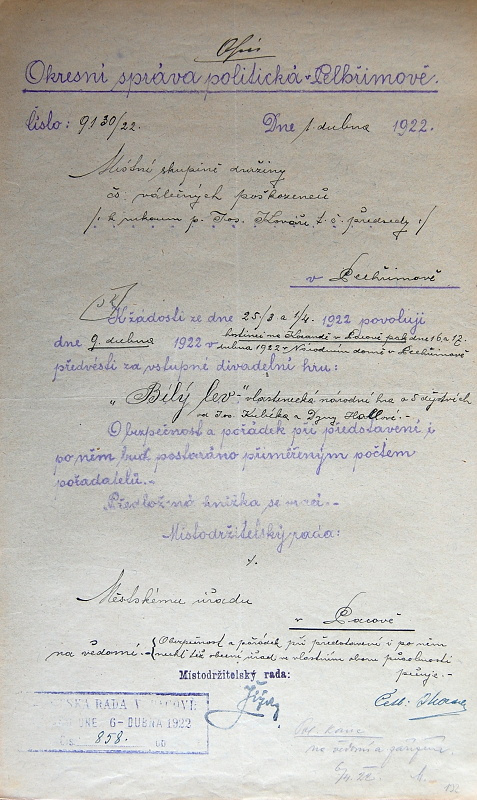 Opis
Okresní správa politická v Pelhřimově.
Číslo: 9130/22. Dne 1. dubna 1922.
Místní skupině družiny
čs. válečných poškozenců
/: k rukoum p. Jos. Kováře, t. č. předsedy :/
v Pelhřimově
K žádosti ze dne 25/3 a 1/4. 1922 povoluji
dne 9. dubna 1922 v hostinci na Korandě v Pacově pak dne 16 a 17.
dubna 1922 v Národním domě v Pelhřimově
předvésti za vstupné divadelní hru:
„Bílý lev" vlastenecká národní hra o 5 dějstvích
od Jos. Kubéka a Hallové.-,
O bezpečnost a pořádek při představení i
po něm buď postaráno přiměřeným počtem
pořadatelů.-
Předložená knížka se vrací.-
Místodržitelský rada:
/.
Městskému úřadu
v Pacově
na vědomí.- O bezpečnost a pořádek při představení i po něm
nechť též obecní úřad ve vlastním oboru působnosti
pečuje.-
Místodržitelský rada:
MĚSTSKÁ RADA V PACOVĚ
DNE 6-DUBNA 1922
Čís. 858.
na vědomí a
6/4. 22.
132